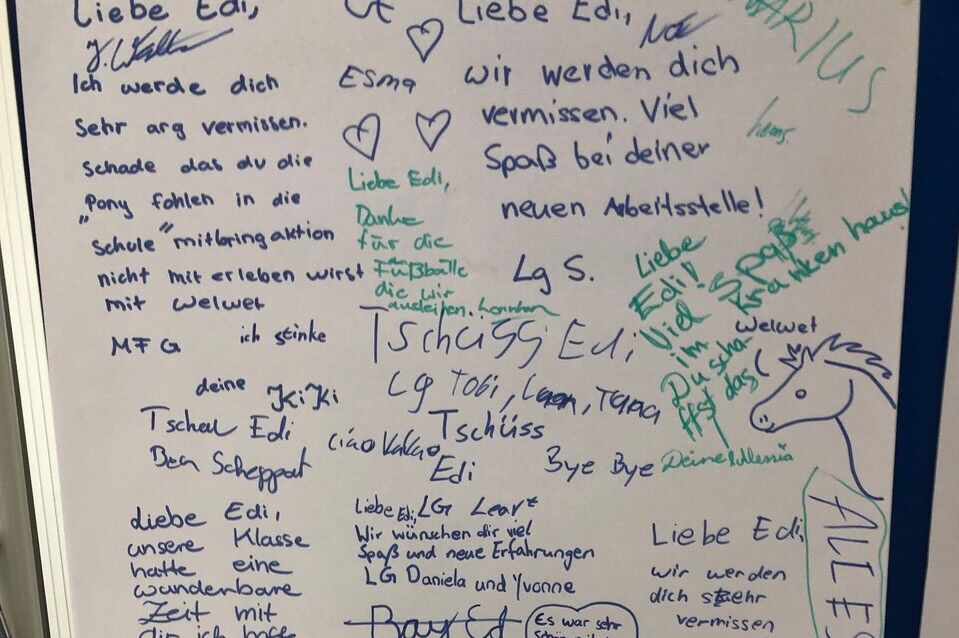 Liebe Edi,
Ich werde dich
sehr arg vermissen.
Schade das du die
„Pony fohlen in die
Schule" mitbringaktion
nicht mit erleben wirst
mit Welwet
MFG
ich stinke
deine KiKi
Esma
Liebe Edi,
Danke
für die
Fußbälle
die wir
ausleihen konnten
Liebe Edi,
wir werden dich
vermissen. Viel
Spaß bei deiner
neuen Arbeitsstelle!
Lg S.
ARIUS
Liebe
Edi!
Viel Spaß
im Krankenhaus!
Du scha-
ffst das
Deine
Welwet
Tschüss Edi
Lg Tobi,
Tschau Edi
Ben
ciao Kakao
Tschüss
Edi
Bye Bye
liebe Edi,
unsere Klasse
hatte eine
wunderbare
Zeit mit
dir ich hoffe
Liebe Edi LG Leart
Wir wünschen dir viel
Spaß und neue Erfahrungen
LG Daniela und Yvonne
Es war sehr
Liebe Edi,
wir werden
dich sehr
vermissen
ALLES